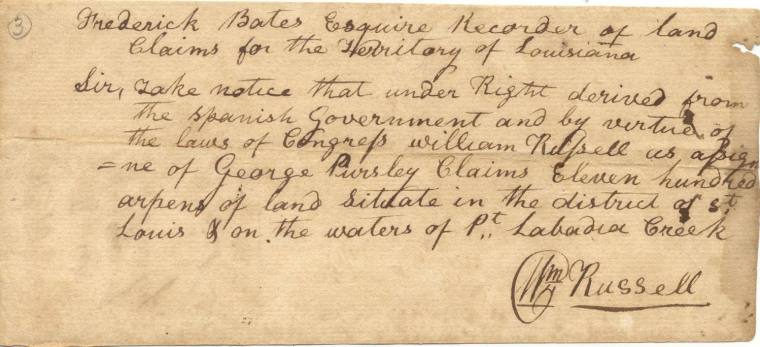 3
Frederick Bates Esquire Recorder of land
Claims for the Territory of Louisiana
Sir, Take notice that under Right derived from
the Spanish Government and by virtue of
the laws of Congress william Russell as assign
=ne of George Pursley Claims Eleven hundred
arpens of land Situate in the district of St.
Louis & on the waters of Pt. Labadia Creek
Wm Russell